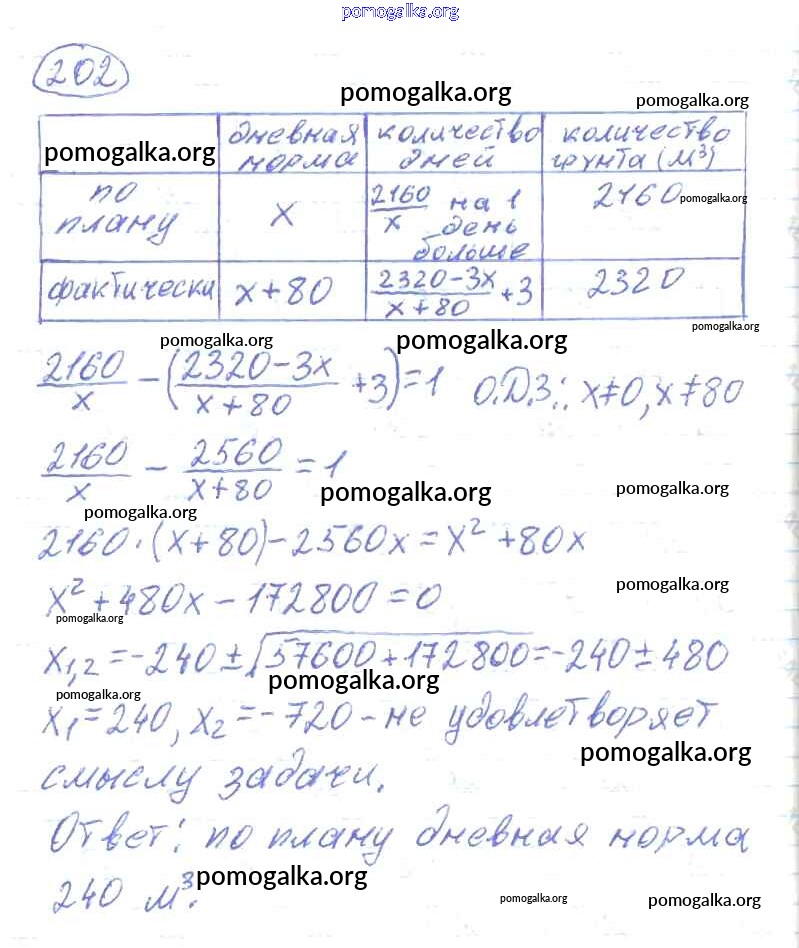 pomogalka.org
202
pomogalka.org pomogalka.org
pomogalka.org дневная норма количество дней количество грунта (м³)
по плану x 2160/x на 1 день больше 2160 pomogalka.org
фактически x+80 (2320-3x)/(x+80) +3 2320
pomogalka.org pomogalka.org pomogalka.org
2160/x - ((2320-3x)/(x+80) +3)=1 О.Д.З.: x≠0, x≠80
2160/x - 2560/(x+80) = 1
pomogalka.org pomogalka.org
pomogalka.org
2160·(x+80)-2560x=x²+80x
x²+480x-172800=0 pomogalka.org
pomogalka.org
x₁,₂=-240±√57600+172800=-240±480
pomogalka.org pomogalka.org
x₁=240, x₂=-720-не удовлетворяет
pomogalka.org
смыслу задачи.
Ответ: по плану дневная норма
240 м³. pomogalka.org
pomogalka.org pomogalka.org